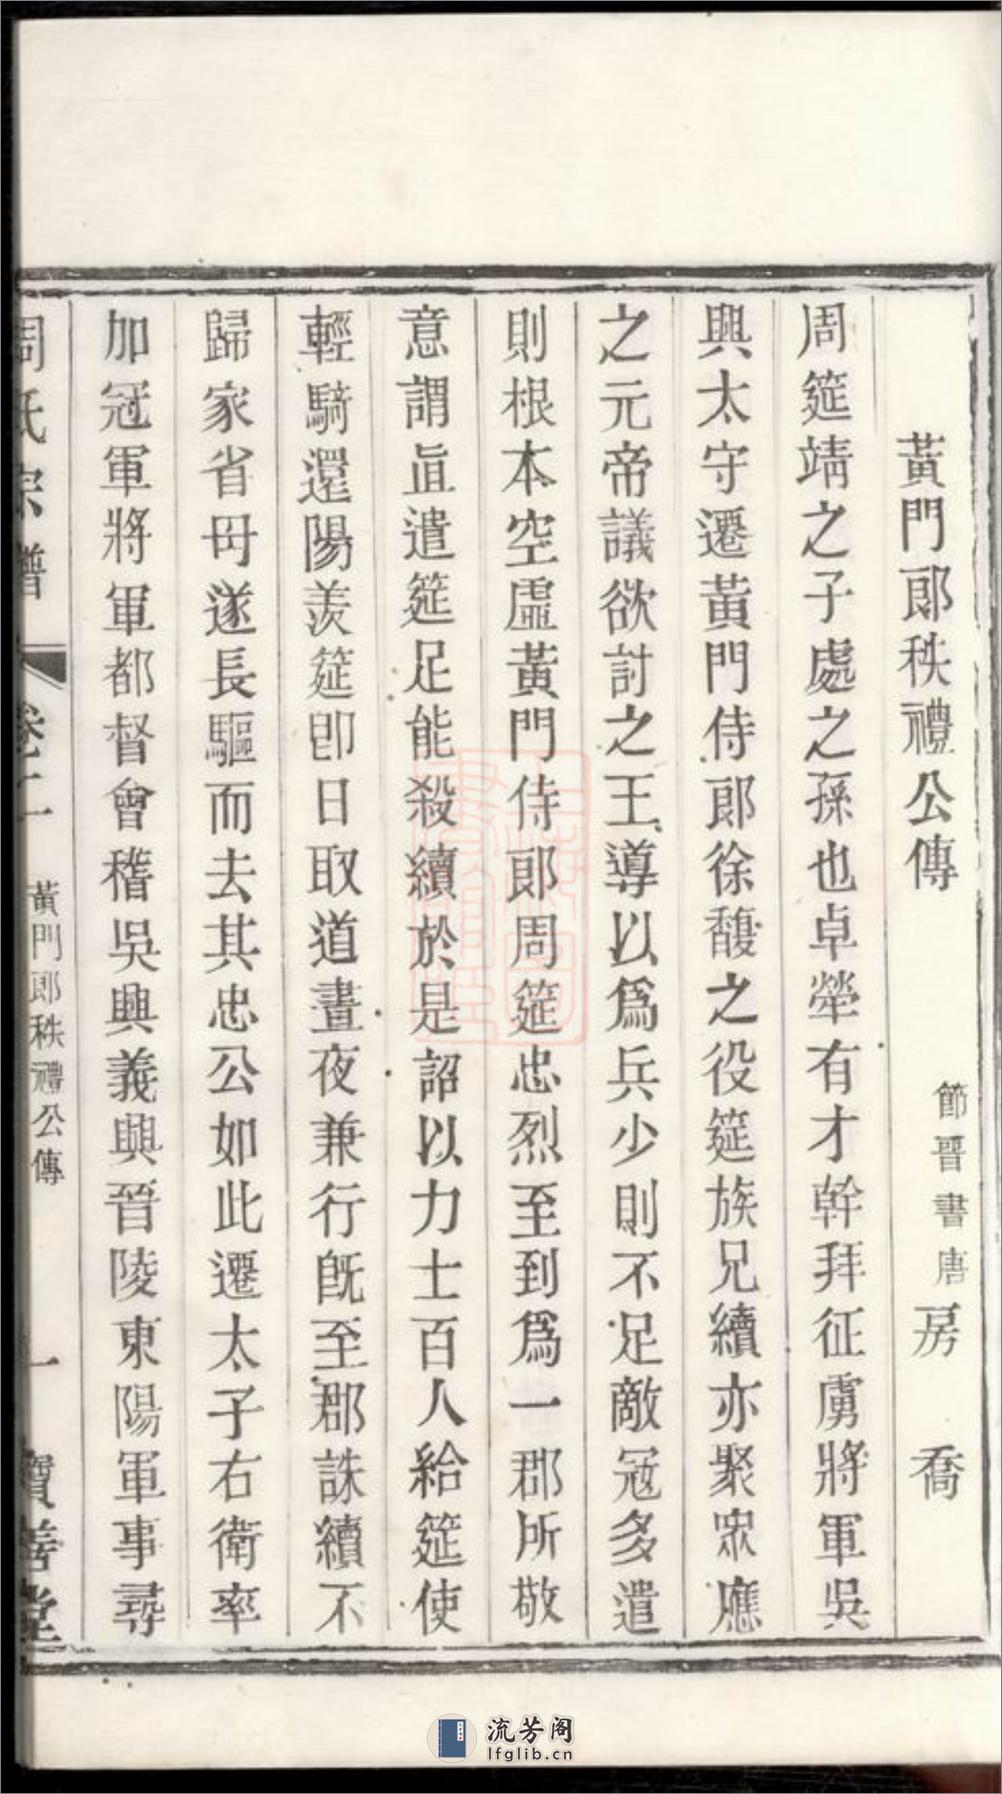 黃門郎秩禮公傳
節晉書唐房喬
周筵靖之子處之孫也卓犖有才幹拜征虜將軍吳
興太守遷黃門侍郎徐馥之役筵族兄續亦聚眾應
之元帝議欲討之王導以爲兵少則不足敵冦多遣
則根本空虛黃門侍郎周筵忠烈至到爲一郡所敬
意謂直遣筵足能殺續於是詔以力士百人給筵使
輕騎還陽羡筵卽日取道晝夜兼行旣至郡誅續不
歸家省母遂長驅而去其忠公如此遷太子右衛率
加冠軍將軍都督會稽吳興義興晉陵東陽軍事尋
周氏宗譜
卷十一
黃門郎秩禮公傳
一
寶善堂
流芳阁
lfglib.cn